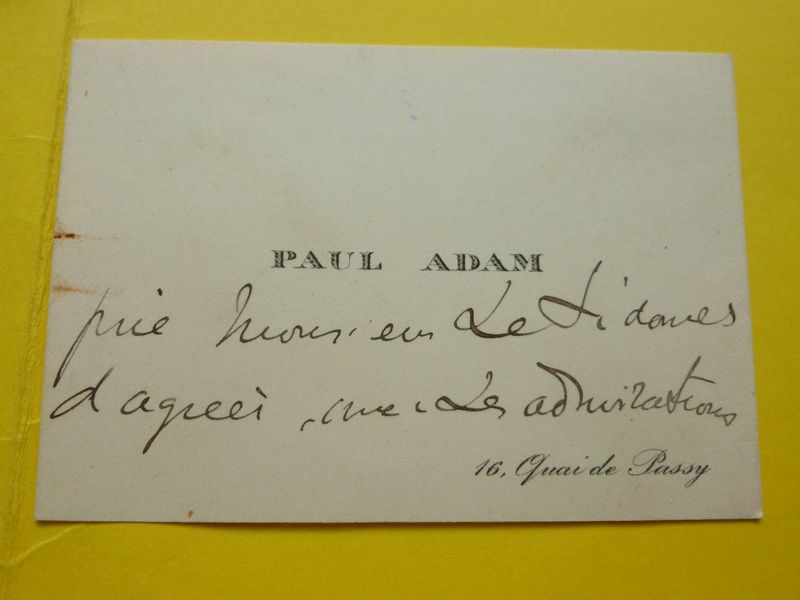 PAUL ADAM
prie Monsieur Le
d'agréer avec Les admirations
16, Quai de Passy